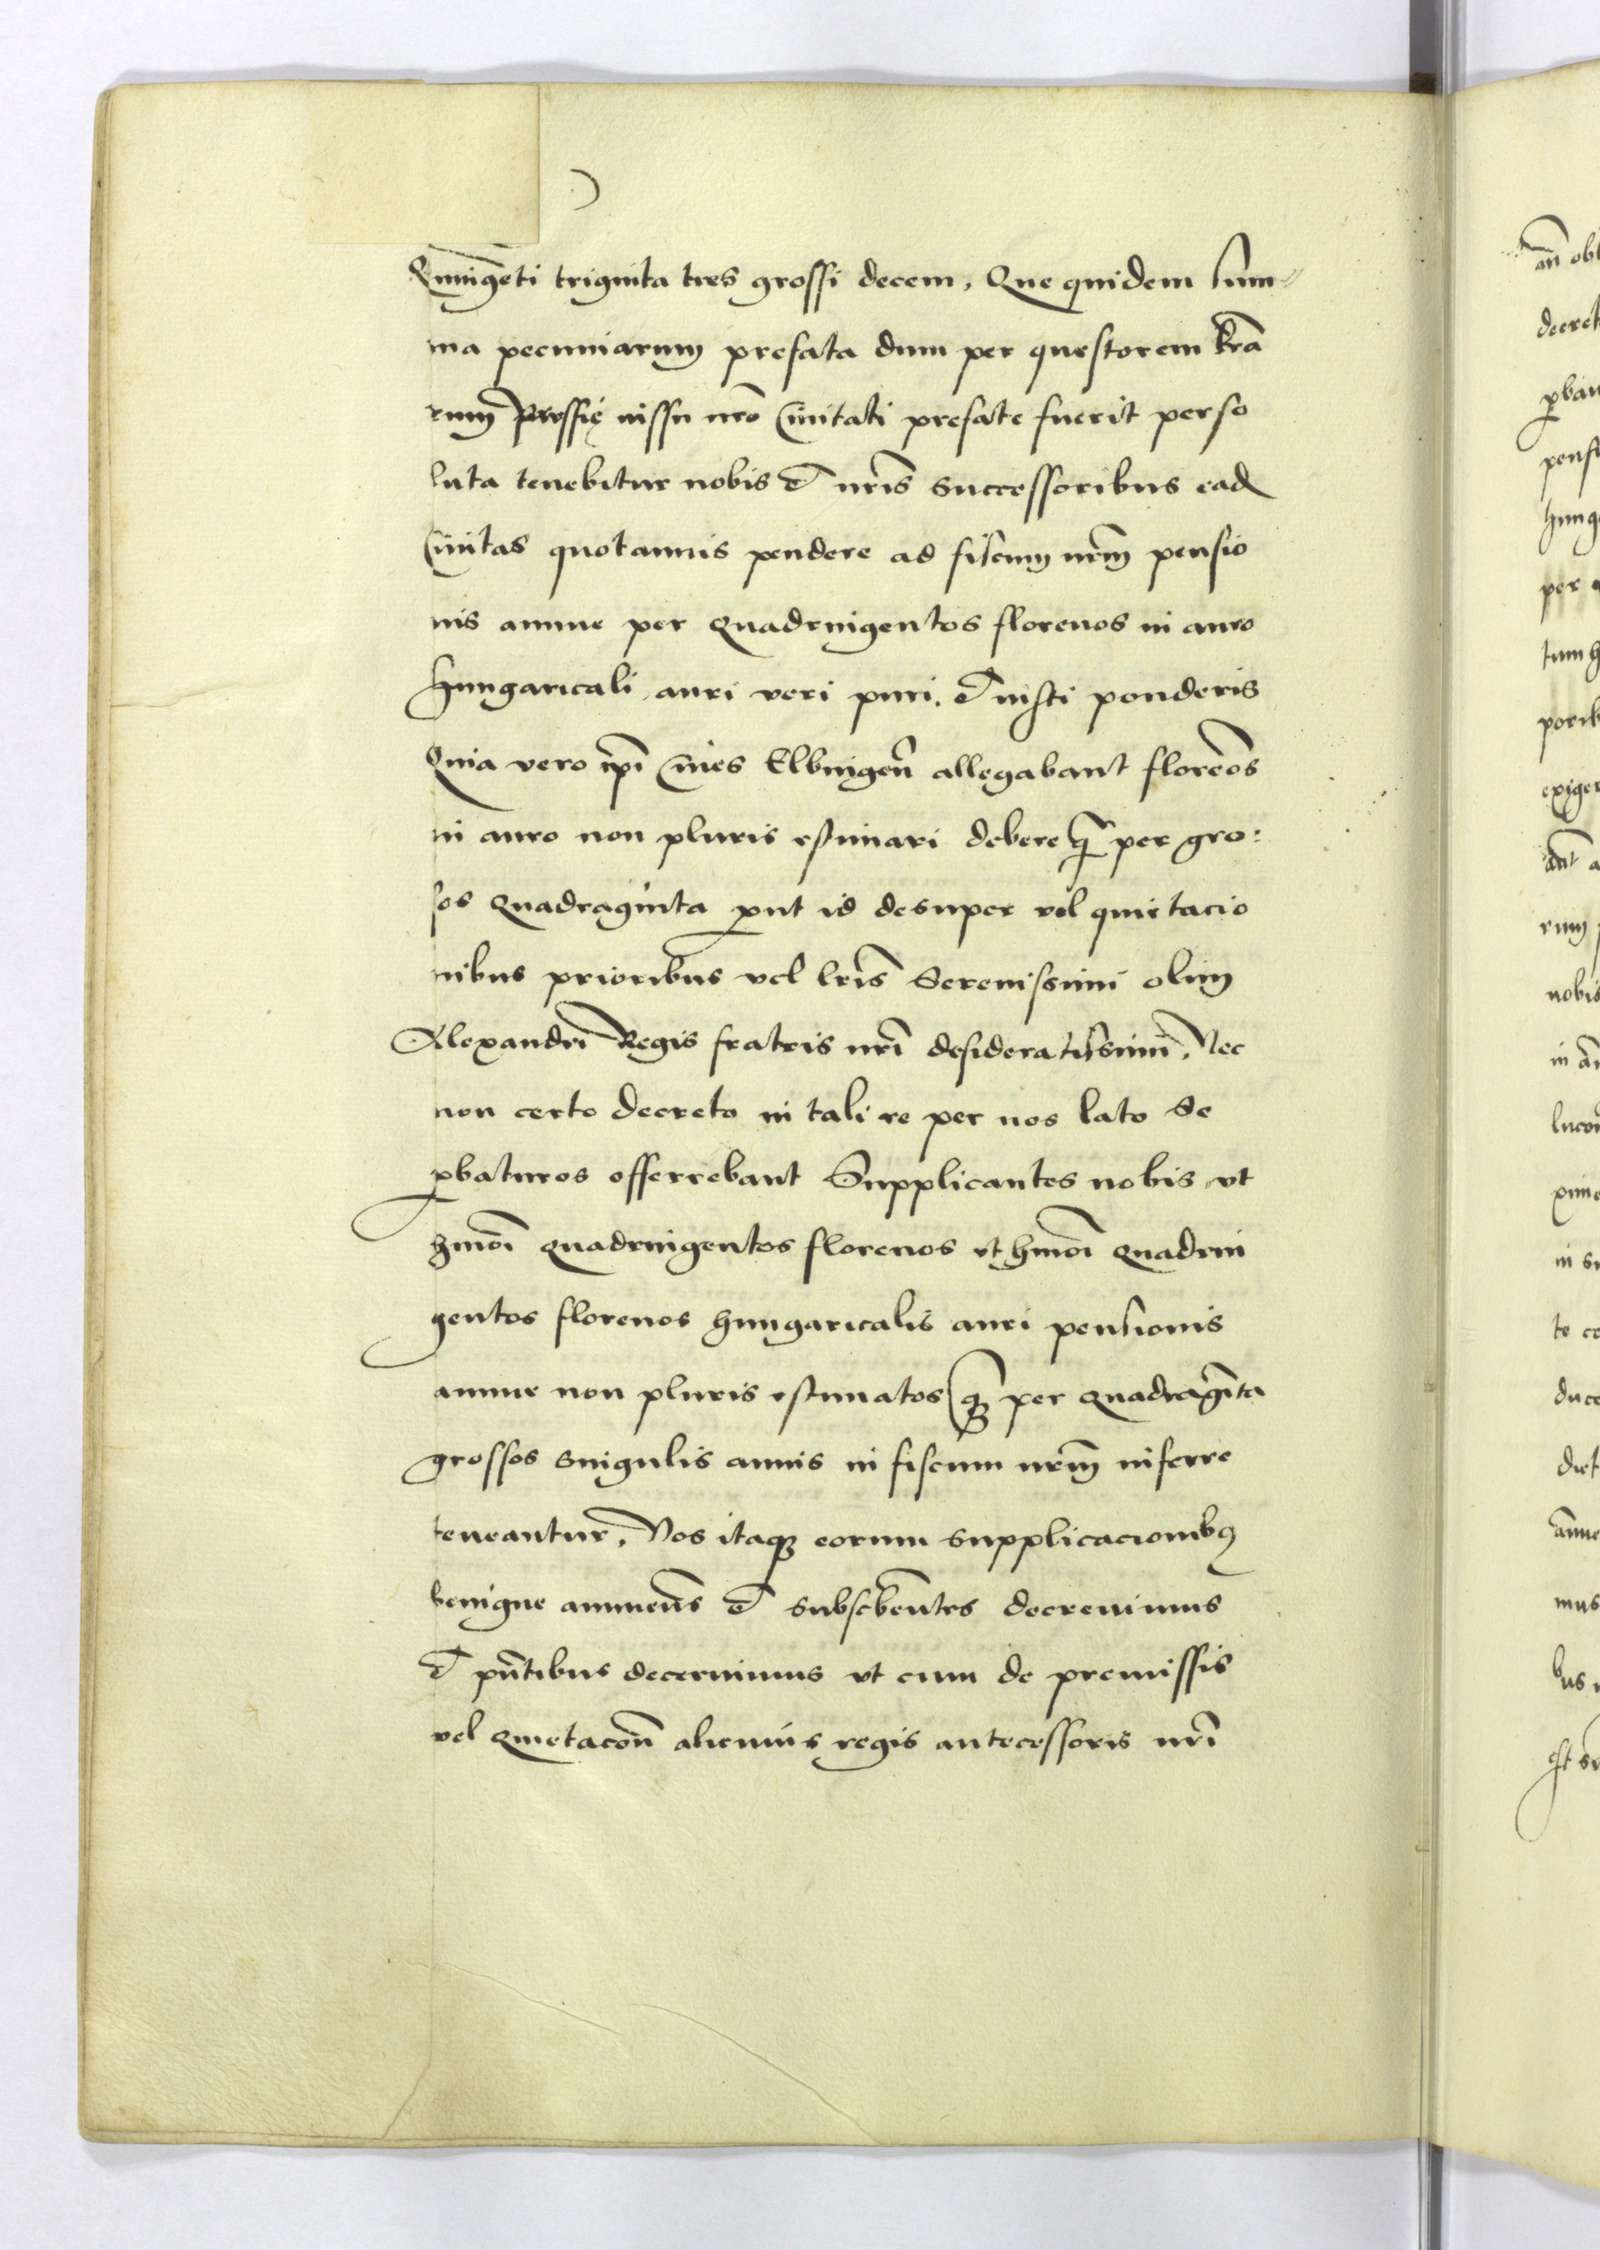 Quingēti triginta tres grossi decem, Que quidem sum-
ma pecuniarum prefata dum per questorem trā
rum prussie iussu nrō Ciuitati prefate fuerit perso
luta tenebitur nobis et nris̄ successoribus ead
Ciuitas quotannis pendere ad fiscum nrm̄ pensio
nis annue per quadringentos florenos in auro
hungaricali auri veri puri et iusti ponderis
Quia vero ipī Ciues Elbingeñ allegabant florēos
in auro non pluris estimari debere q̄ per gro:
sos quadraginta ꝓut id desuper vel quietacio
nibus prioribus vel lrīs Serenissimi olim
Alexandri Regis fratris nrī desideratissimi, Nec
non certo decreto in tali re per nos lato se
ꝓbaturos offerrebant Supplicantes nobis vt
hmōi quadringentos florenos vt hmōi quadrin
gentos florenos hungaricalis auri pensionis
annue non pluris estimatos q̄ per quadragīta
grossos singulis annis in fiscum nrm̄ inferre
teneantur, Nos itaqꝫ eorum supplicacionibꝰ
benigne annuen̄s et subscbēntes decreuimus
et pn̄tibus decernimus vt cum de premissis
vel quietacōn̄ alicuius regis antecessoris nrī